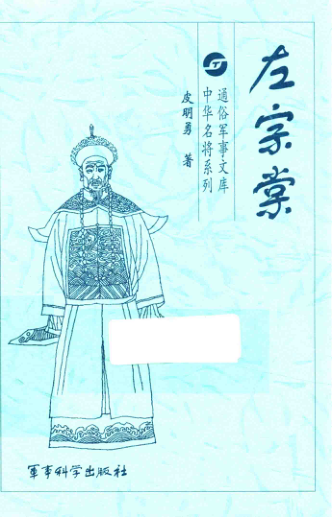 左宗棠
通俗军事文库
中华名将系列
皮明勇 著
军事科学出版社